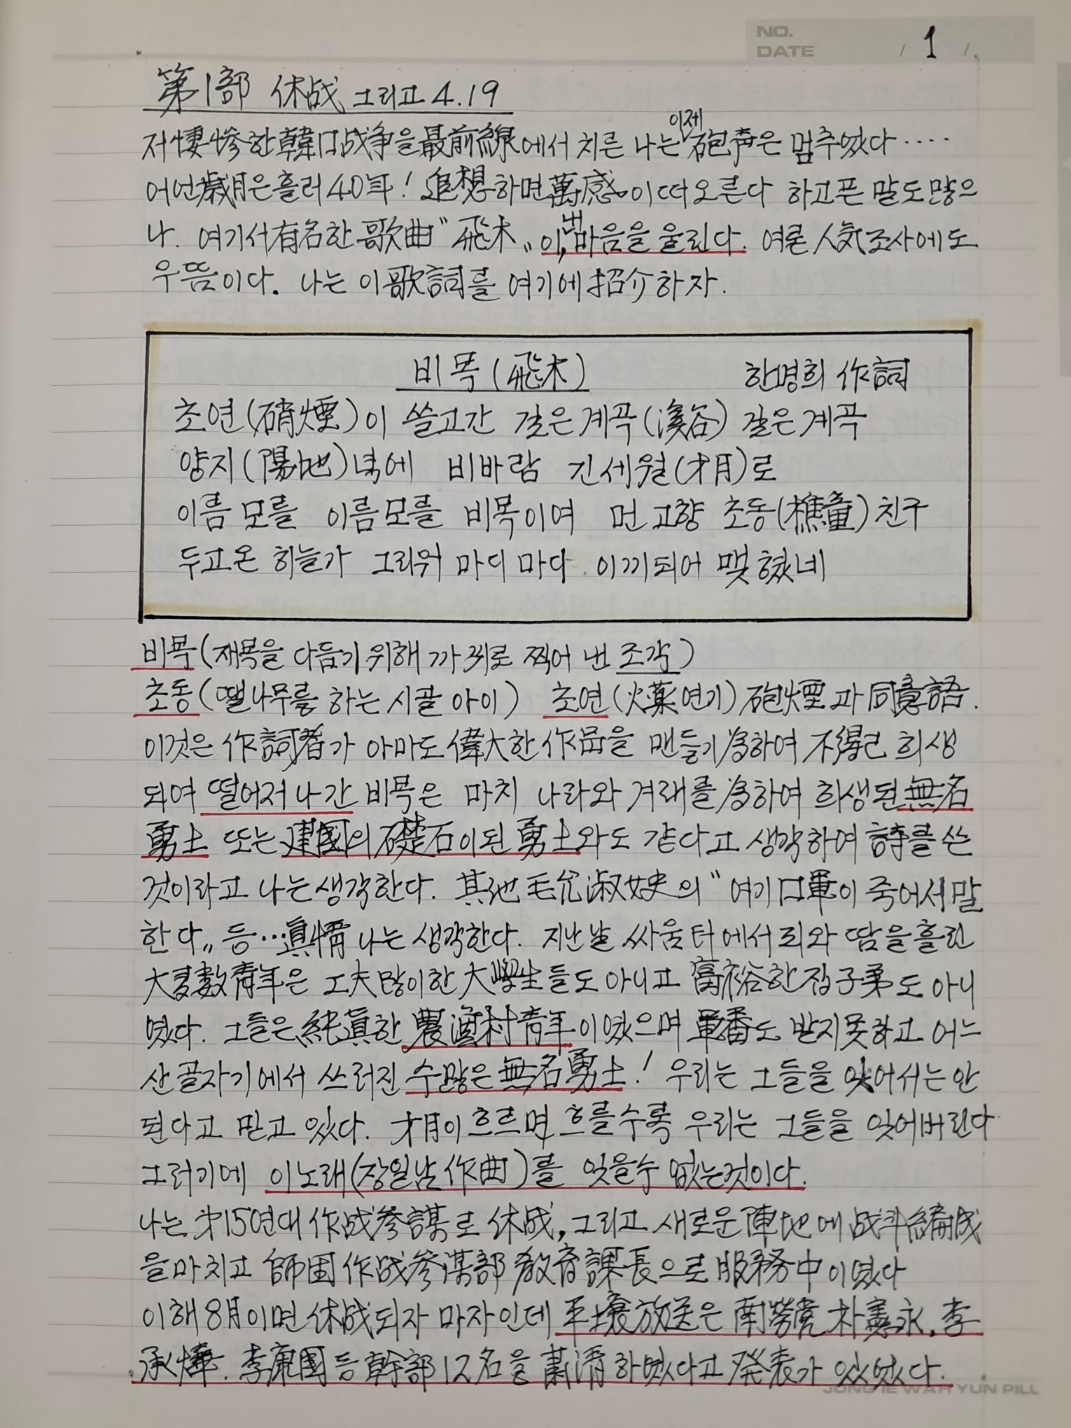 NO.
DATE / 1 /.
第1部 休战 그리고 4.19
저悽惨한 韓口战争을 最前線에서 치른 나는 이제 砲声은 멈추었다 ‥‥
어언歲月은 흘러 40年! 追想하면 萬感이 떠오른다 하고픈 말도 많으
나. 여기서 有名한 歌曲 "飛木" 이, 내 마음을 울린다. 여론 人気조사에도
우뜸이다. 나는 이 歌詞를 여기에 紹介하자.
비목(飛木) 한명희 作詞
초연(硝煙)이 쓸고간 깊은계곡(溪谷) 깊은계곡
양지(陽地)녘에 비바람 긴세월(才月)로
이름모를 이름모를 비목이여 먼고향 초동(樵童)친구
두고온 히늘가 그리워 마디마다 이끼되어 맺혔네
비목(재목을 다듬기위해 까뀌로 찍어 낸 조각)
초동(땔나무를 하는 시골 아이) 초연(火薬연기) 砲煙과 同意語.
이것은 作詞者가 아마도 偉大한 作品을 맨들기 為하여 不得已 희생
되여 떨어저나간 비목은 마치 나라와 겨래를 為하여 희생된 無名
勇士 또는 建國의 礎石이된 勇士와도 같다고 생각하여 詩를 쓴
것이라고 나는 생각한다. 其他 毛允淑女史의 "여기 口軍이 죽어서 말
한다" 등…眞情 나는 생각한다. 지난날 싸움터에서 피와 땀을 흘린
大多数青年은 工夫많이한 大學生들도 아니고 富裕한 집子弟도 아니
였다. 그들은 純眞한 農漁村青年이였으며 軍番도 받지못하고 어느
산골자기에서 쓰러진 수많은 無名勇士! 우리는 그들을 잊어서는 안
된다고 믿고 있다. 才月이 흐르면 흐를수록 우리는 그들을 잊어버린다
그러기에 이노래(장일남作曲)를 잊을수 없는것이다.
나는 才15연대 作战参謀로 休战, 그리고 새로운 陣地에 战斗編成
을 마치고 師団作战参謀部 教育課長으로 服務中이였다
이해 8月이면 休战되자 마자인데 平壤放送은 南労党 朴憲永, 李
承燁. 李康國 등 幹部 12名을 肅清하였다고 発表가 있었다.
JONG IE WAH YUN PILL